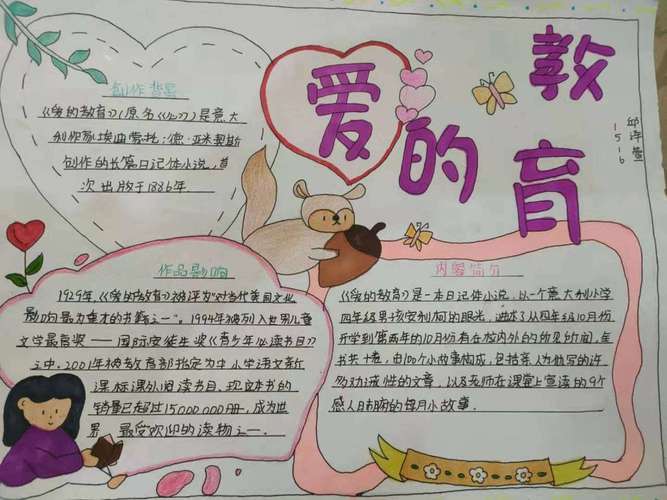 爱的教育
邱译萱
1516
创作背景
《爱的教育》(原名《心》)是意大
利作家埃曲蒙托·德·亚米契斯
创作的长篇日记体小说,首
次出版于1886年.
作品影响
1929年,《爱的教育》被评为"对当代美国文化
影响最为重大的书籍之一".1994年被列入世界儿童
文学最高奖——国际安徒生奖《青少年必读书目》
之中.2001年被教育部指定为中小学语文新
课标课外阅读书目.现这本书的
销量已超过15000000册,成为世
界最受欢迎的读物之一.
内容简介
《爱的教育》是一本日记体小说,以一个意大利小学
四年级男孩安利柯的眼光,讲述了从四年级10月份
开学到第二年的10月份有在校内外的所见所闻,全
书共十卷,由100个小故事构成,包括亲人为他写的许
多劝诫性的文章,以及老师在课堂上宣读的9个
感人肺腑的每月小故事.